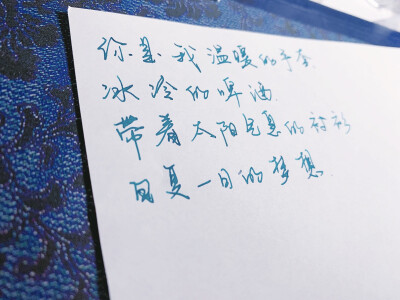 你是我温暖的手套
冰冷的啤酒.
带着太阳气息的衬衫
日复一日的梦想.